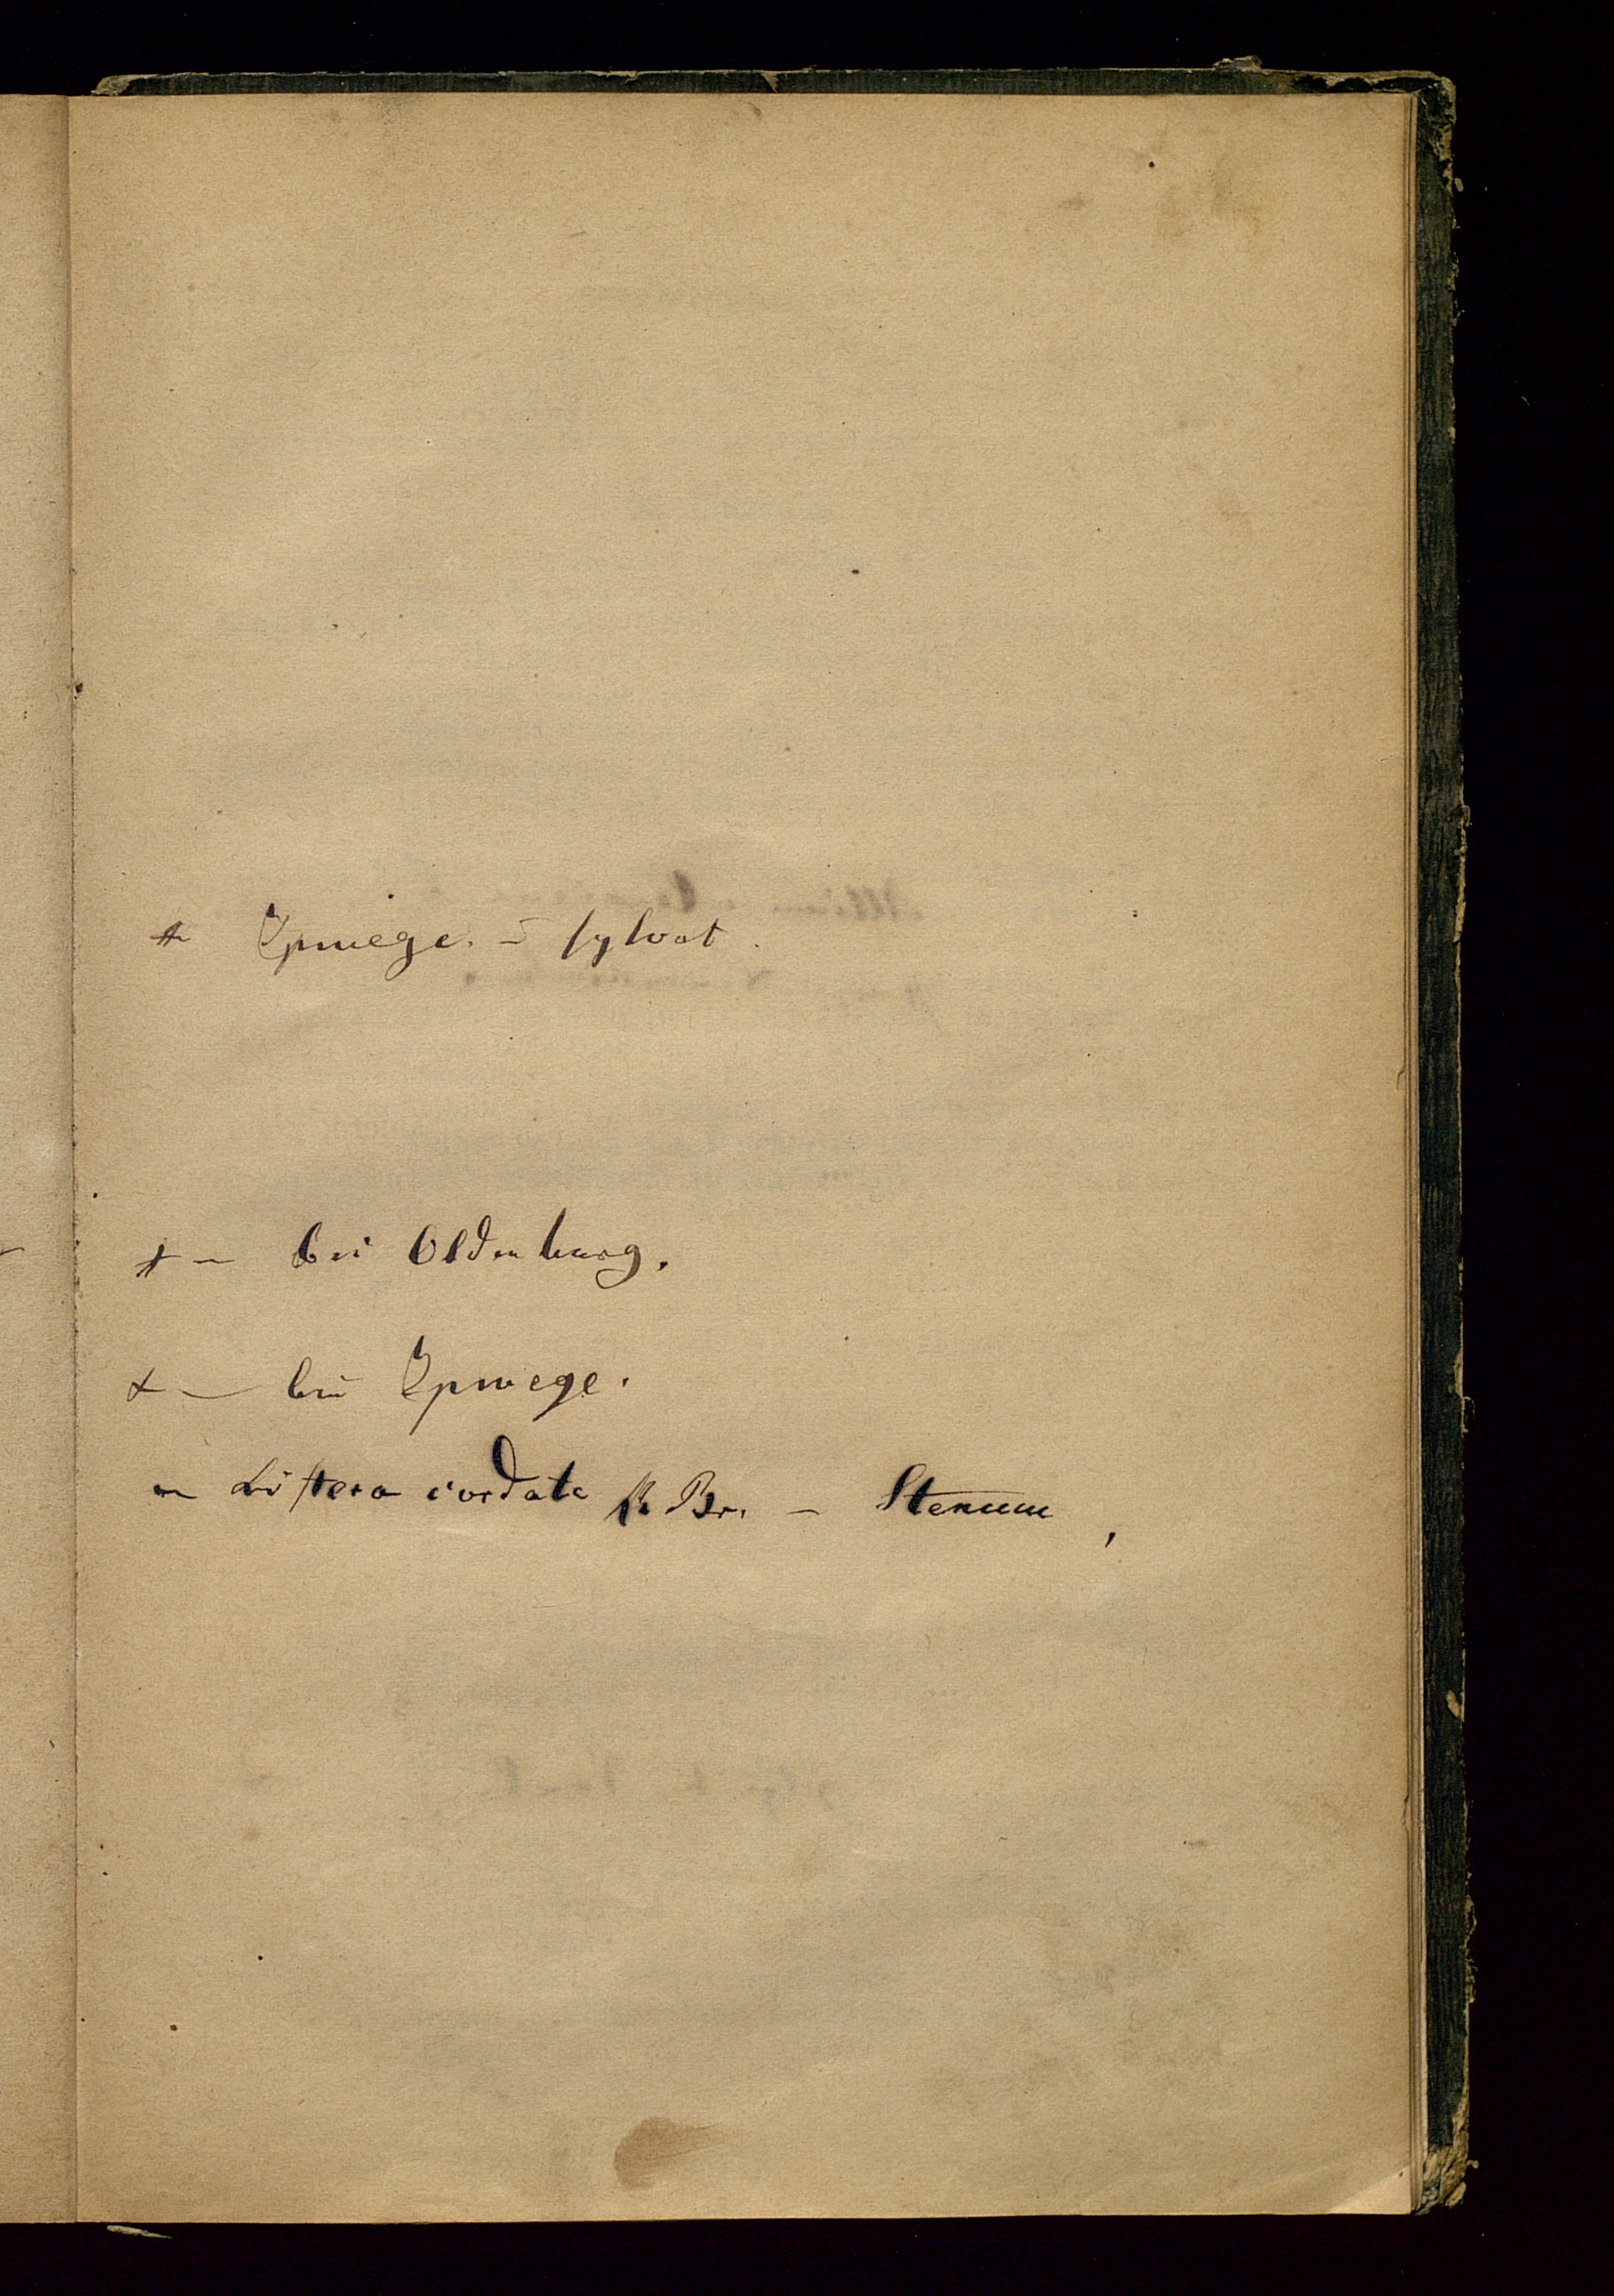 + Ipwege. – sylvat.
+ – bei Oldenburg.
+ – bei Ipwege.
– Listera cordata R. Br. – Stenum,